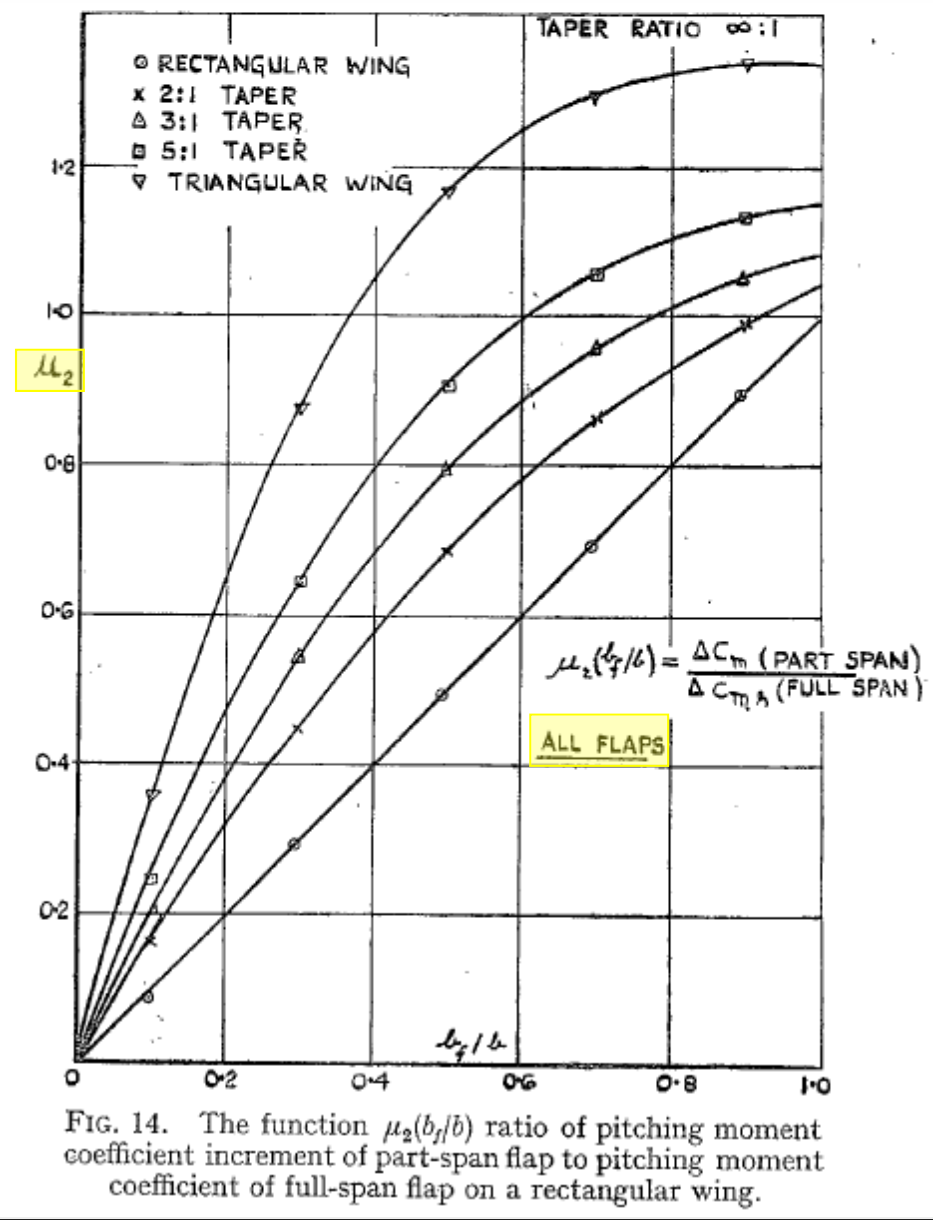 TAPER RATIO ∞:1
⊙ RECTANGULAR WING
x 2:1 TAPER
△ 3:1 TAPER
⊡ 5:1 TAPER
▽ TRIANGULAR WING
1·2
1·0
μ₂
0·8
0·6
μ₂(b_f/b) = ΔC_m (PART SPAN)
ΔC_m s (FULL SPAN)
ALL FLAPS
0·4
0·2
b_f/b
0 0·2 0·4 0·6 0·8 1·0
FIG. 14. The function μ₂(b_f/b) ratio of pitching moment
coefficient increment of part-span flap to pitching moment
coefficient of full-span flap on a rectangular wing.